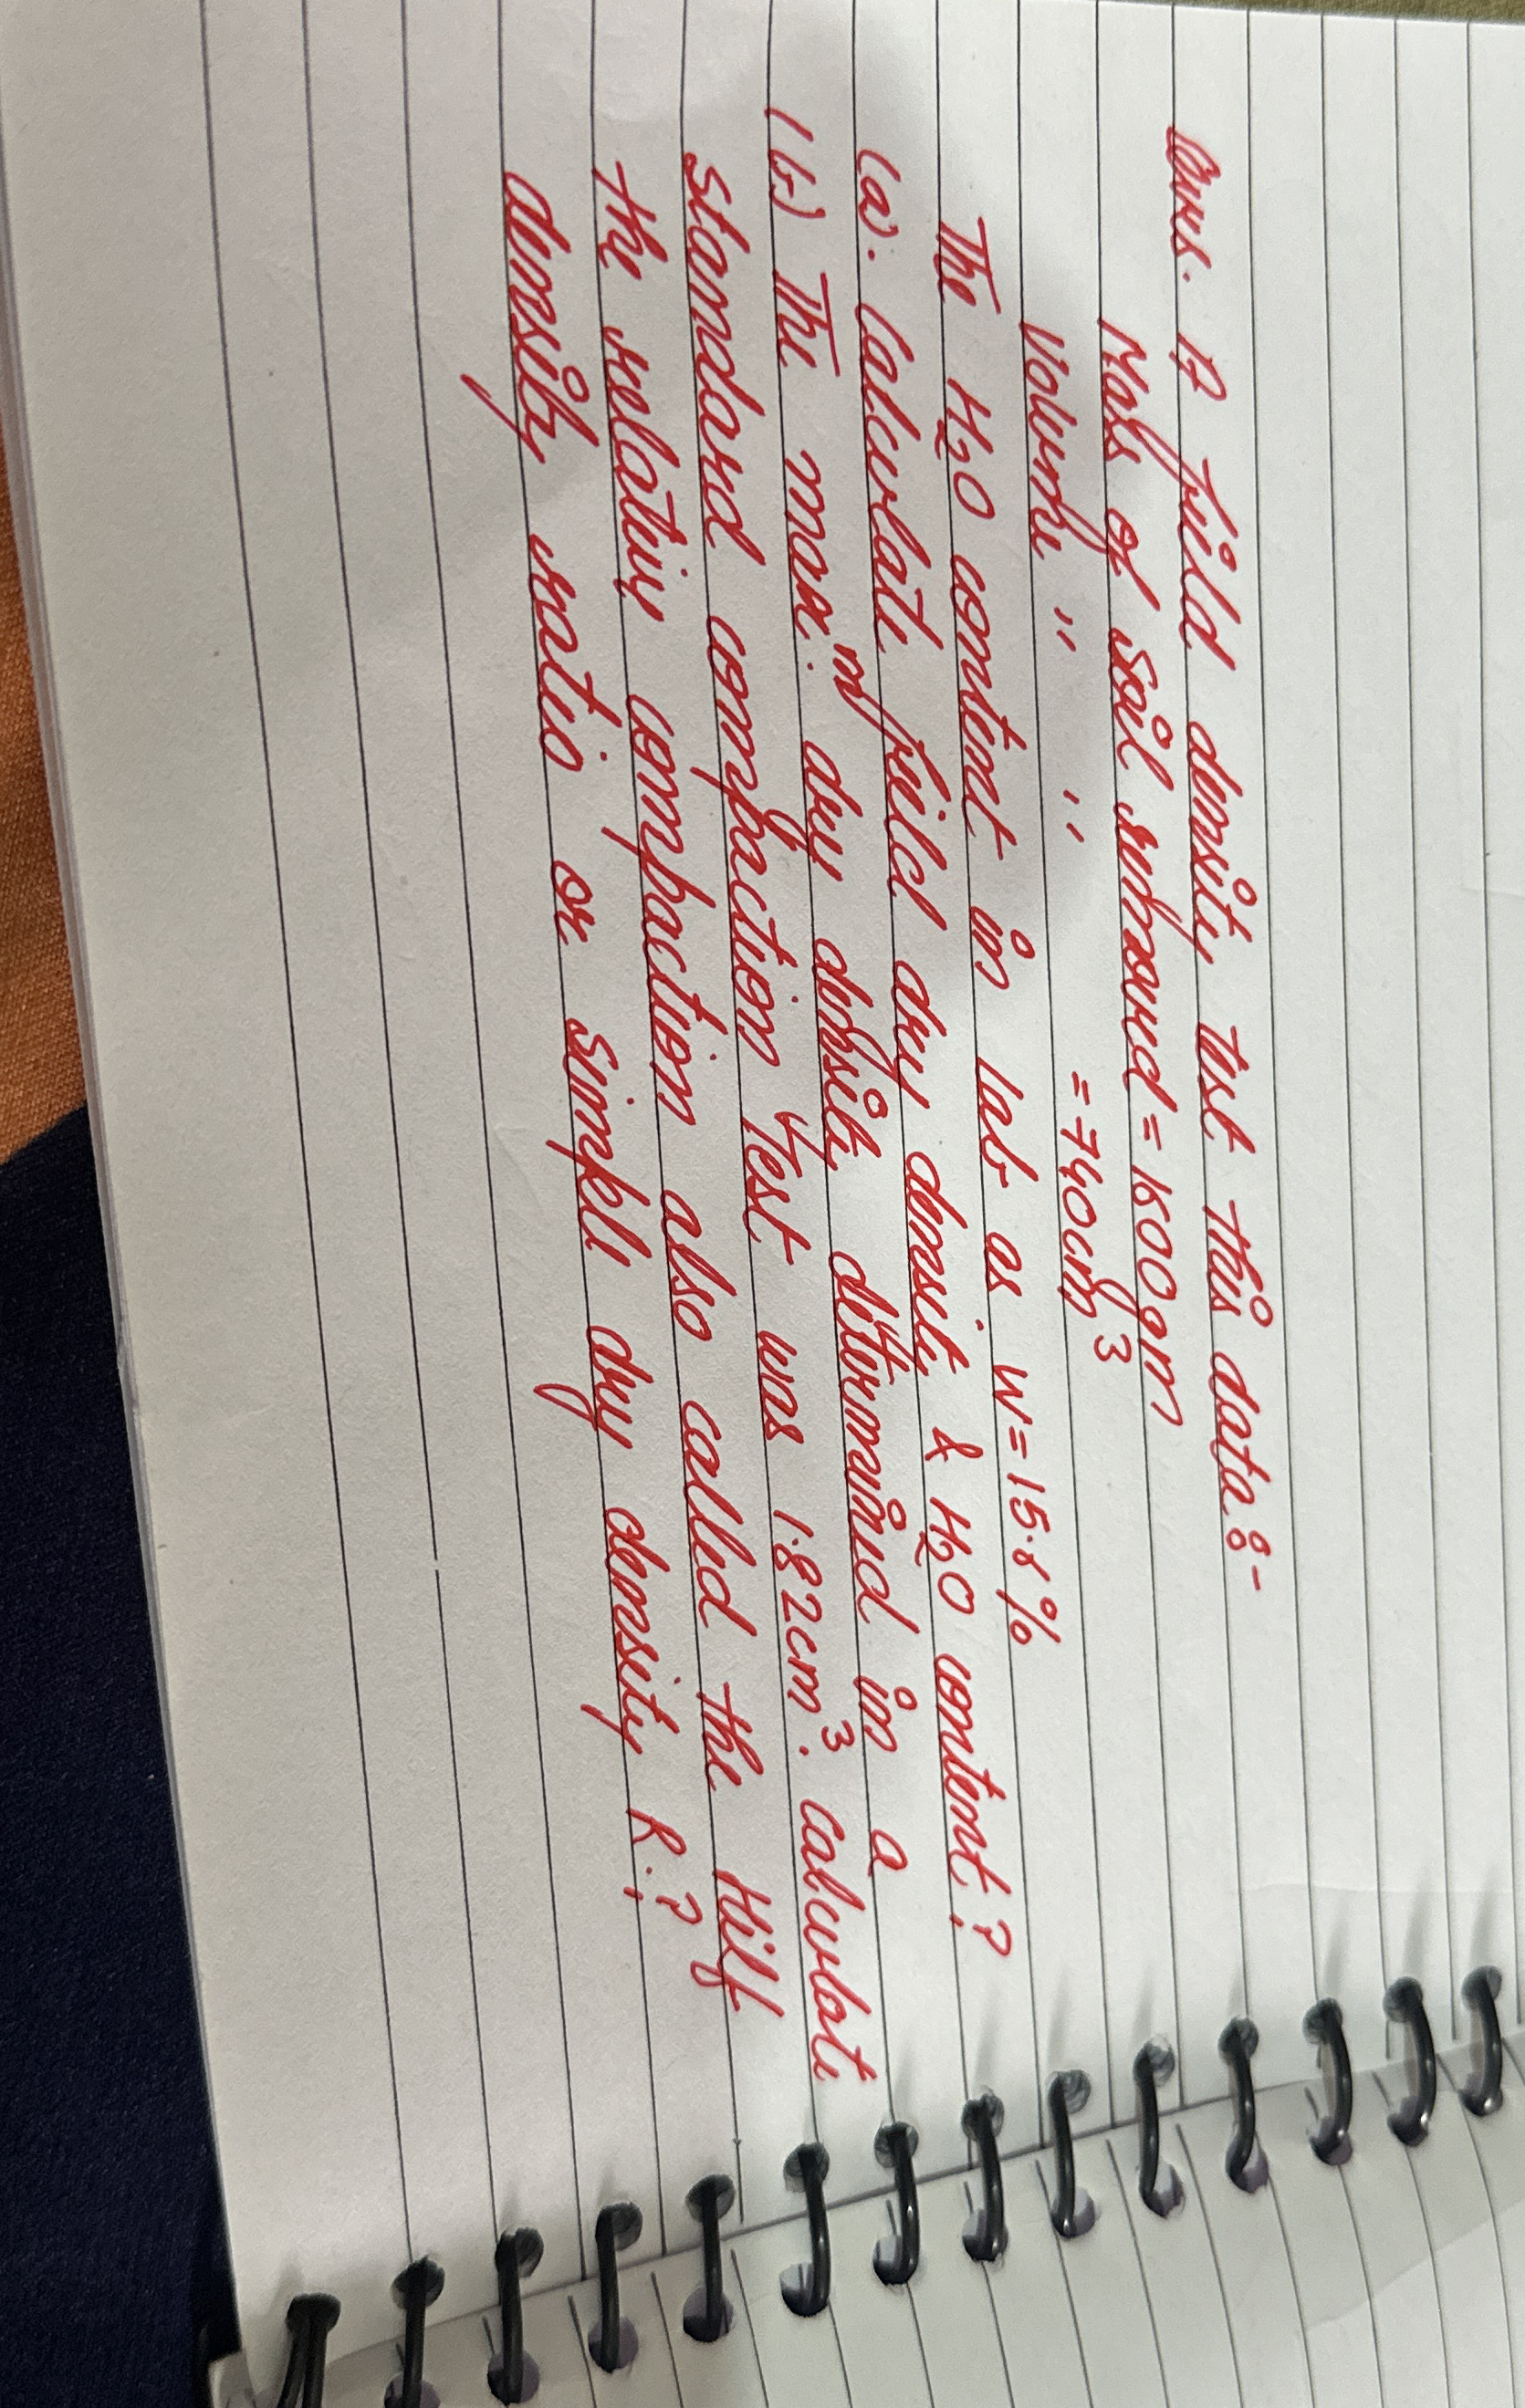 Ques. A field density test this data:-
Mass of soil removed = 1500gm
Volume " " = 740cm³
The H₂O content in lab as w = 15.8%
(a). Calculate field dry density & H₂O content?
(b) The max.ᵐ dry density determined in a
standard compaction Test was 1.82cm³. Calculate
the relative compaction also called the Hilf
density ratio or simple dry density R.?